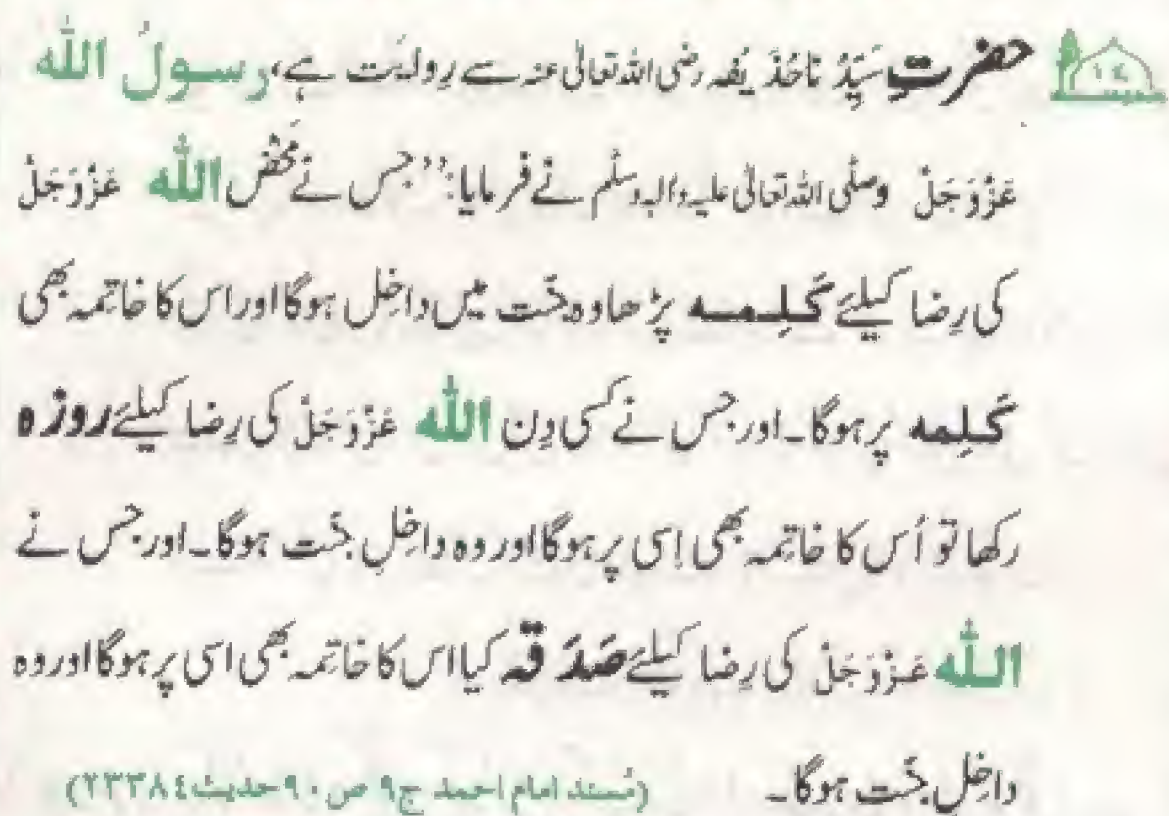 ۱٤ حضرتِ سَیِّدُنا حُذَیْفہ رضی اللہ تعالیٰ عنہ سے رِوایَت ہے، رسولُ اللّٰه
عَزَّوَجَلَّ وصلَّی اللہ تعالیٰ علیہ واٰلہ وسلَّم نے فرمایا: ’’جس نے مَحْض اللّٰه عَزَّوَجَلَّ
کی رِضا کیلئے کَلِمہ پڑھا وہ جنَّت میں داخِل ہوگا اور اس کا خاتِمہ بھی
کَلِمہ پر ہوگا۔ اور جس نے کسی دِن اللّٰه عَزَّوَجَلَّ کی رِضا کیلئے روزہ
رکھا تو اُس کا خاتِمہ بھی اِسی پر ہوگا اور وہ داخِلِ جنَّت ہوگا۔ اور جس نے
اللّٰه عَزَّوَجَلَّ کی رِضا کیلئے صَدَقہ کیا اس کا خاتمہ بھی اسی پر ہوگا اور وہ
داخِلِ جنَّت ہوگا۔ (مُسند امام احمد ج۹ ص۹۰ حدیث۲۳۳۸٤)